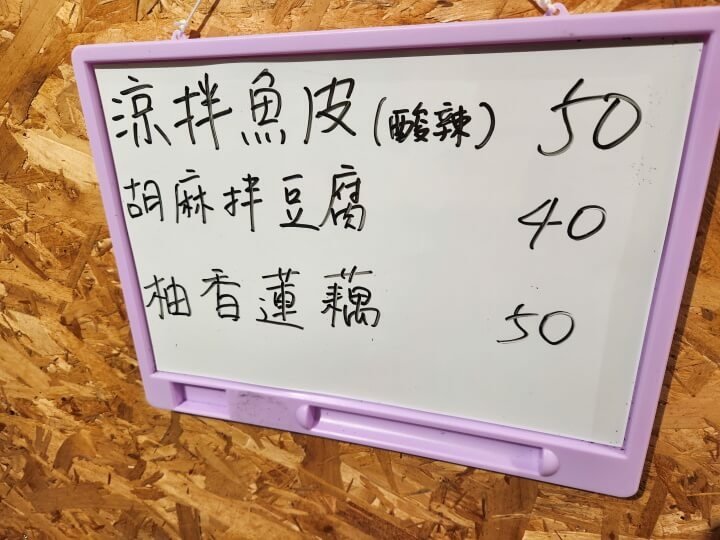 涼拌魚皮(酸辣) 50
胡麻拌豆腐 40
柚香蓮藕 50